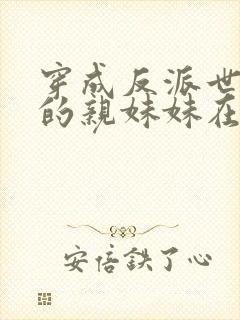 穿成反派世
的亲妹妹在
安倍鉄了心